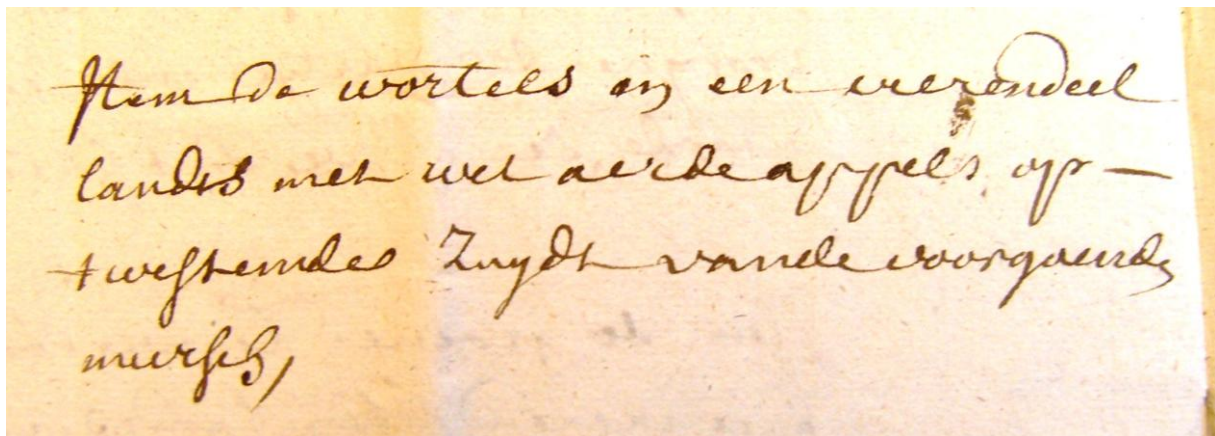 Item de wortels in een vierendeel
landts met wet aerdeappels op –
twestende Zuydt vande voorgaende
mersch,